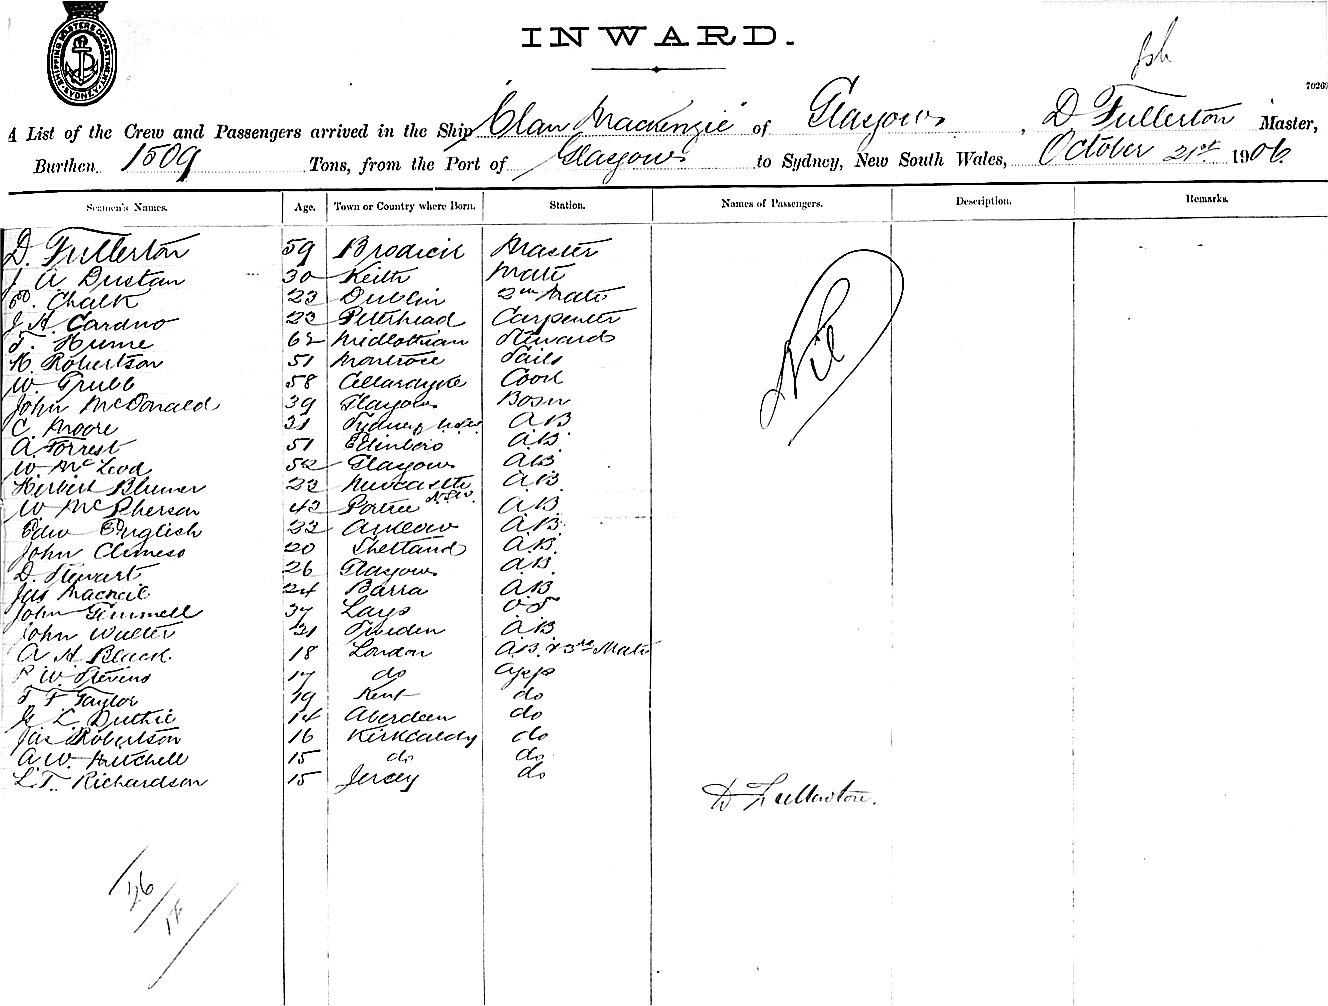 SHIPPING MASTERS DEPARTMENT
SYDNEY
INWARD.
7026
A List of the Crew and Passengers arrived in the Ship "Clan Mackenzie" of Glasgow, D Fullerton Master,
Burthen 1509 Tons, from the Port of Glasgow to Sydney, New South Wales, October 21st 1906.
Seamen's Names. Age. Town or Country where Born. Station. Names of Passengers. Description. Remarks.
D. Fullerton 59 Brodick Master
J A Dustan 30 Keith Mate
Chalk 23 Dublin 2nd Mate
J. A. Cardno 23 Peterhead Carpenter
T. Hume 62 Midlothian Steward
H. Robertson 51 Montrose Sails
W. Grubb 58 Cellardyke Cook
John McDonald 39 Glasgow Bosn
C. Moore 31 Sydney AB
A Forrest 51 Edinboro AB
W. McLeod 52 Glasgow AB
Herbert Blumer 22 Newcastle AB
N.S.W.
W McPherson 43 Portree AB
Edw English 33 Arklow AB
John Climeso 20 Shetland AB
D. Stewart 26 Glasgow AB
Jas MacNeil 24 Barra AB
John Gemmell 37 Largs OS
John Walter 31 Sweden AB
A H Black 18 London AB & 3rd Mate
P. W. Stevens 17 do App
T F Taylor 19 Kent do
G L Duthie 14 Aberdeen do
Jas Robertson 16 Kirkcaldy do
A. W. Mitchell 15 do do
L. T. Richardson 15 Jersey do
Nil
D Fullerton.
26